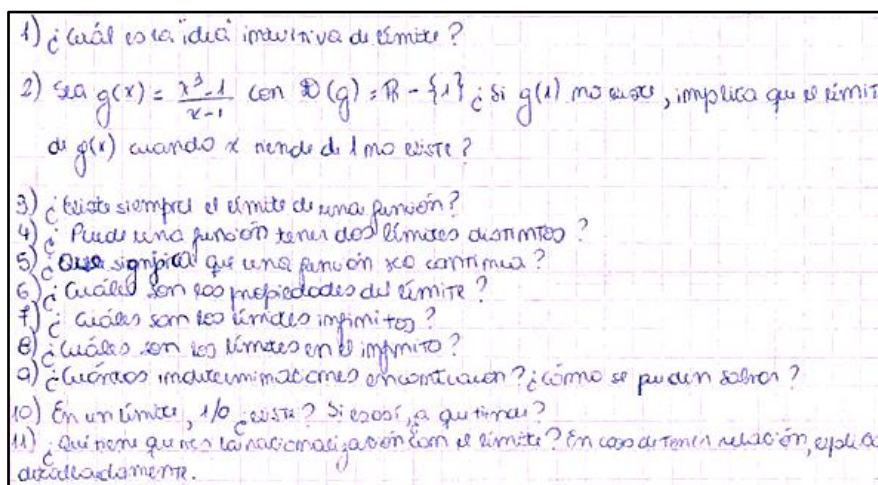 1) ¿Cuál es la "idea" intuitiva de límite?
2) Sea g(x) = x³-1/x-1 con D(g) = R - {1} ¿Si g(1) no existe, implica que el límit
de g(x) cuando x tiende de 1 no existe?
3) ¿Existe siempre el límite de una función?
4) ¿Puede una función tener dos límites distintos?
5) ¿Que significa que una función sea continua?
6) ¿Cuáles son los propiedades del límite?
7) ¿Cuáles son los límites infinitos?
8) ¿Cuáles son los límites en el infinito?
9) ¿Cuántas indeterminaciones encontraron? ¿cómo se pueden salvar?
10) En un límite, 1/0 ¿existe? Si es así, a que tiende?
11) ¿Qué tiene que ver la racionalización con el límite? En caso de tener relación, explica
detalladamente.